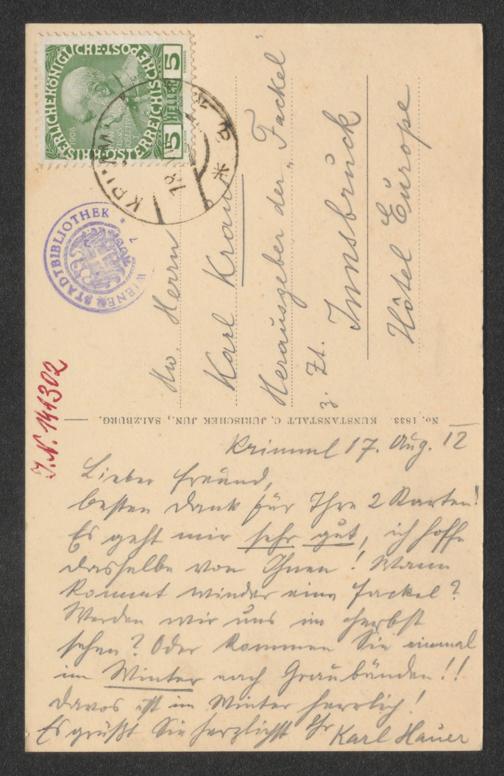 KAISERLICHE KÖNIGLICHE ÖSTERREICHISCHE POST
5 HELLER 5
WIENER STADTBIBLIOTHEK
J.N. 141302
Herrn
Karl Kraus
Herausgeber der „Fackel"
z. Zt. Innsbruck
Hôtel Europe
No. 1833 KUNSTANSTALT C. JURISCHEK JUN., SALZBURG.
Krimml 17. Aug. 12
Lieber Freund,
besten Dank für Ihre 2 Karten!
Es geht mir sehr gut, ich hoffe
dasselbe von Ihnen! Wann
kommt wieder eine Fackel?
Werden wir uns im Herbst
sehen? Oder kommen Sie einmal
im Winter nach Graubünden!!
Davos ist im Winter herrlich!
Es grüßt Sie herzlichst Ihr
Karl Hauer